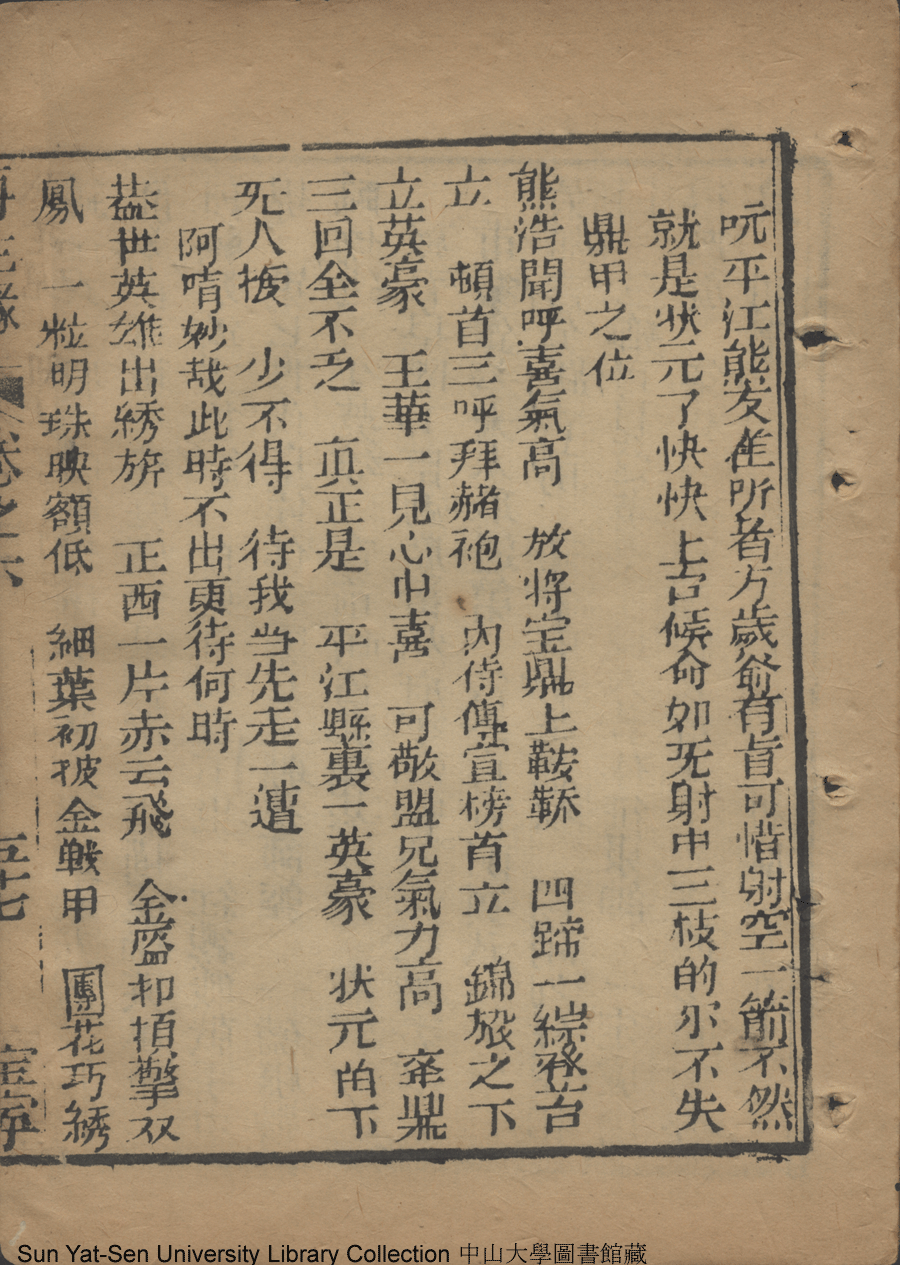 吮平江熊友隹所者万歲爺有旨可惜射空一箭不然
就是状元了快快上台候命如旡射中三枝的尔不失
鼎甲之位
熊浩聞呼喜氣高　放将宝鼎上鞍鞒　四蹄一綜登苔
立　頓首三呼拜赭袍　內侍傳宣榜首立　錦旅之下
立英豪　王華一見心中喜　可敬盟兄氣力高　奉鼎
三回全不乏　真正是　平江縣裏一英豪　状元的下
旡人接　少不得　待我当先走一遭
阿唷妙哉此時不出更待何時
盖世英雄出綉旂　正西一片赤云飛　金盔扣揁擎双
鳳　一粒明珠映額低　細葉初披金戰甲　團花巧綉
再生緣　卷之六　五十七　宝寧
Sun Yat-Sen University Library Collection 中山大學圖書館藏